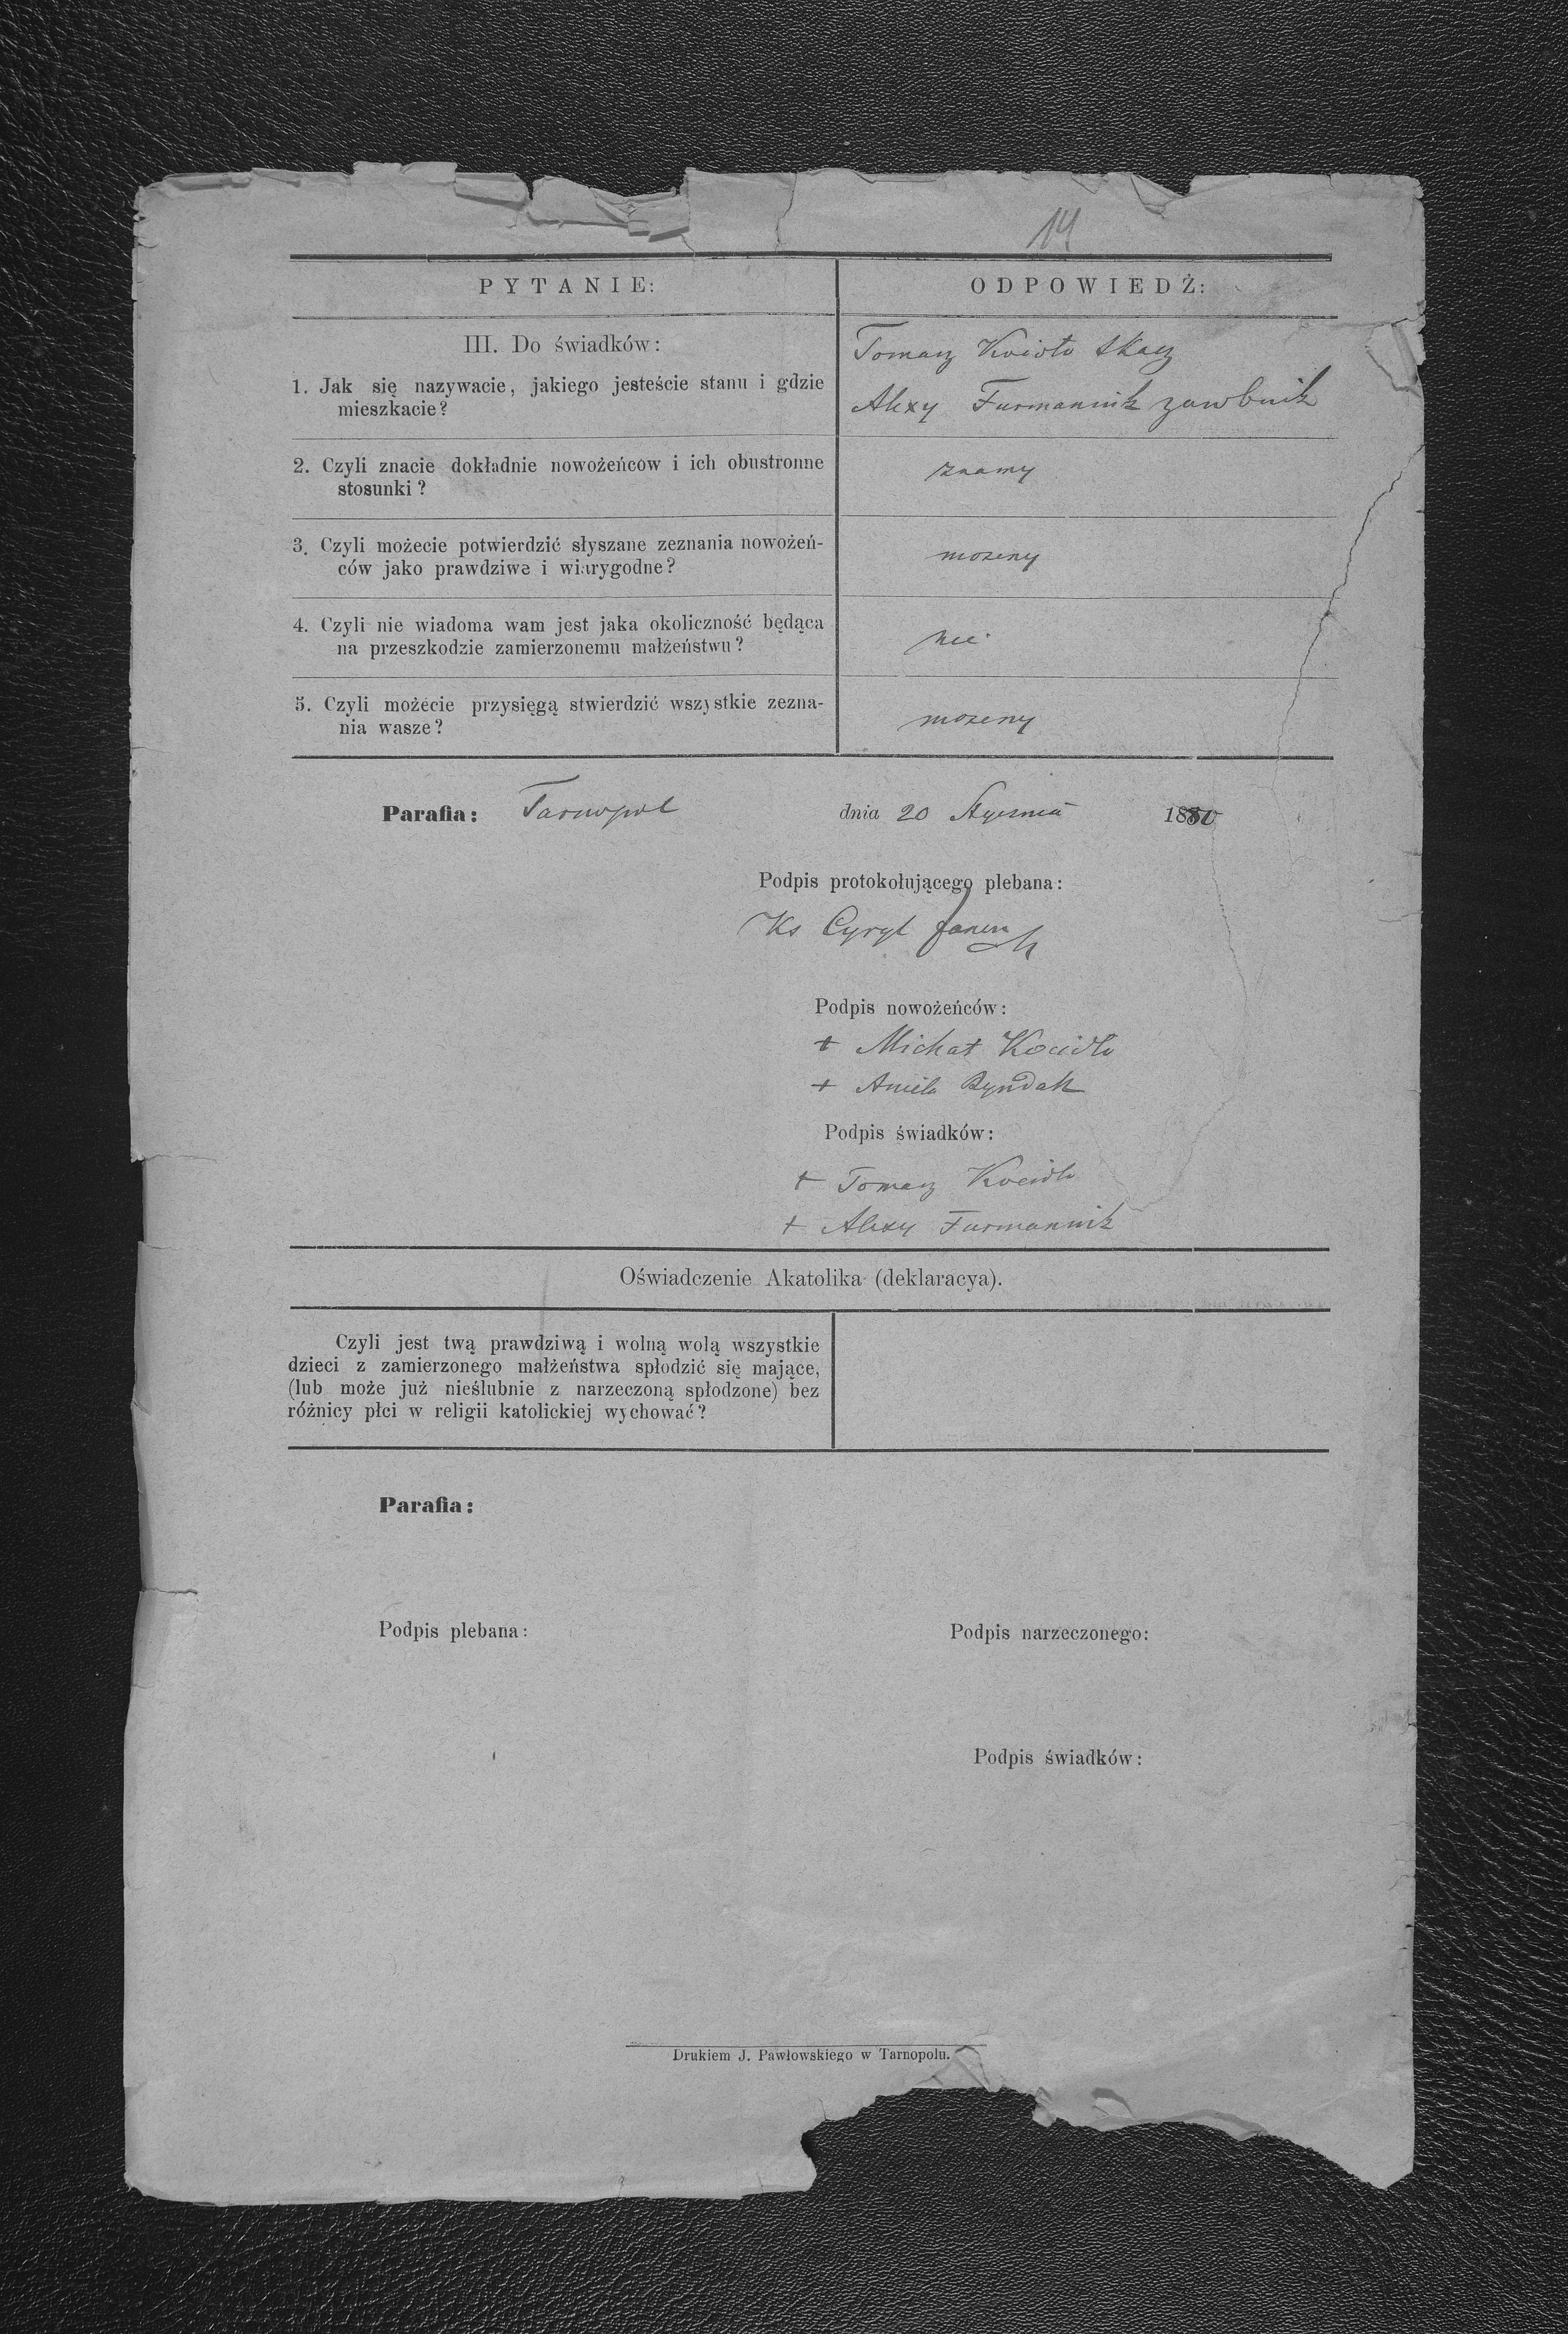 14
PYTANIE:
ODPOWIEDŹ:
III. Do świadków:
1. Jak się nazywacie, jakiego jesteście stanu i gdzie
mieszkacie?
Tomasz tkacz
Alexy Furmannik
2. Czyli znacie dokładnie nowożeńców i ich obustronne
stosunki?
znamy
3. Czyli możecie potwierdzić słyszane zeznania nowożeń-
ców jako prawdziwe i wiarygodne?
możemy
4. Czyli nie wiadoma wam jest jaka okoliczność będąca
na przeszkodzie zamierzonemu małżeństwu?
nie
5. Czyli możecie przysięgą stwierdzić wszystkie zezna-
nia wasze?
możemy
Parafia: Tarnopol dnia 20 Stycznia 1880
Podpis protokołującego plebana:
Ks Cyryl
Podpis nowożeńców:
+ Michał
+ Aniela Ryndak
Podpis świadków:
+ Tomasz
+ Alexy Furmannik
Oświadczenie Akatolika (deklaracya).
Czyli jest twą prawdziwą i wolną wolą wszystkie
dzieci z zamierzonego małżeństwa spłodzić się mające,
(lub może już nieślubnie z narzeczoną spłodzone) bez
różnicy płci w religii katolickiej wychować?
Parafia:
Podpis plebana:
Podpis narzeczonego:
Podpis świadków:
Drukiem J. Pawłowskiego w Tarnopolu.